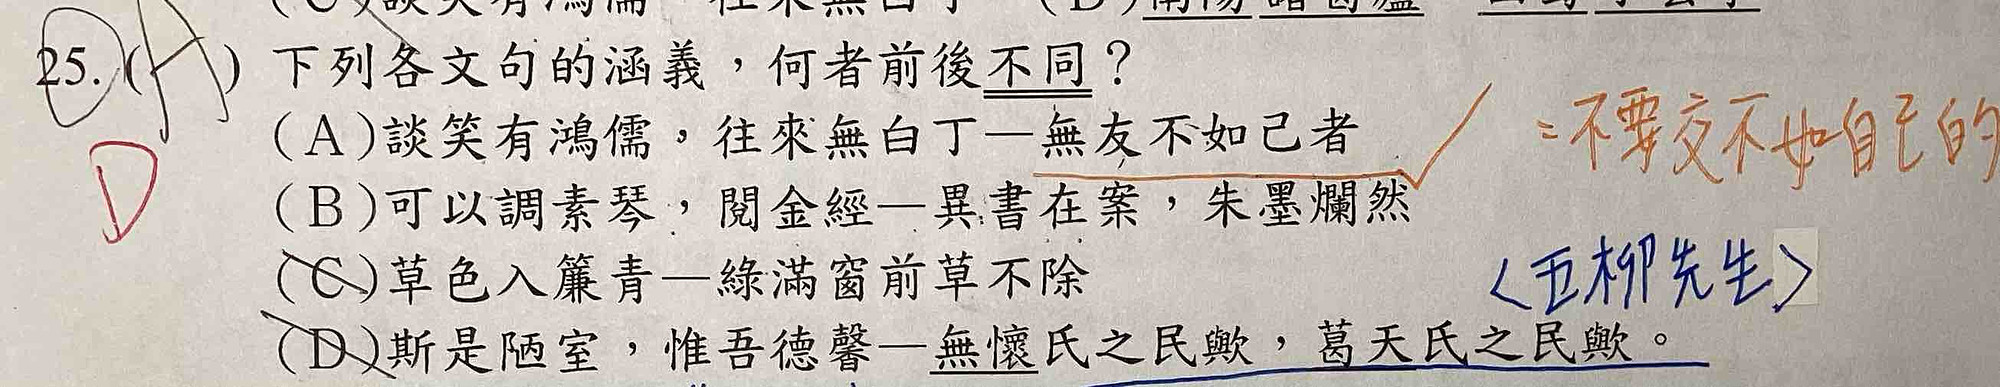 (C)談笑有鴻儒 往來無白丁 (D)南陽諸葛廬
25.(A) 下列各文句的涵義，何者前後不同？
D
(A)談笑有鴻儒，往來無白丁—無友不如己者 =不要交不如自己的
(B)可以調素琴，閱金經—異書在案，朱墨爛然
(C)草色入簾青—綠滿窗前草不除 〈五柳先生〉
(D)斯是陋室，惟吾德馨—無懷氏之民歟，葛天氏之民歟。